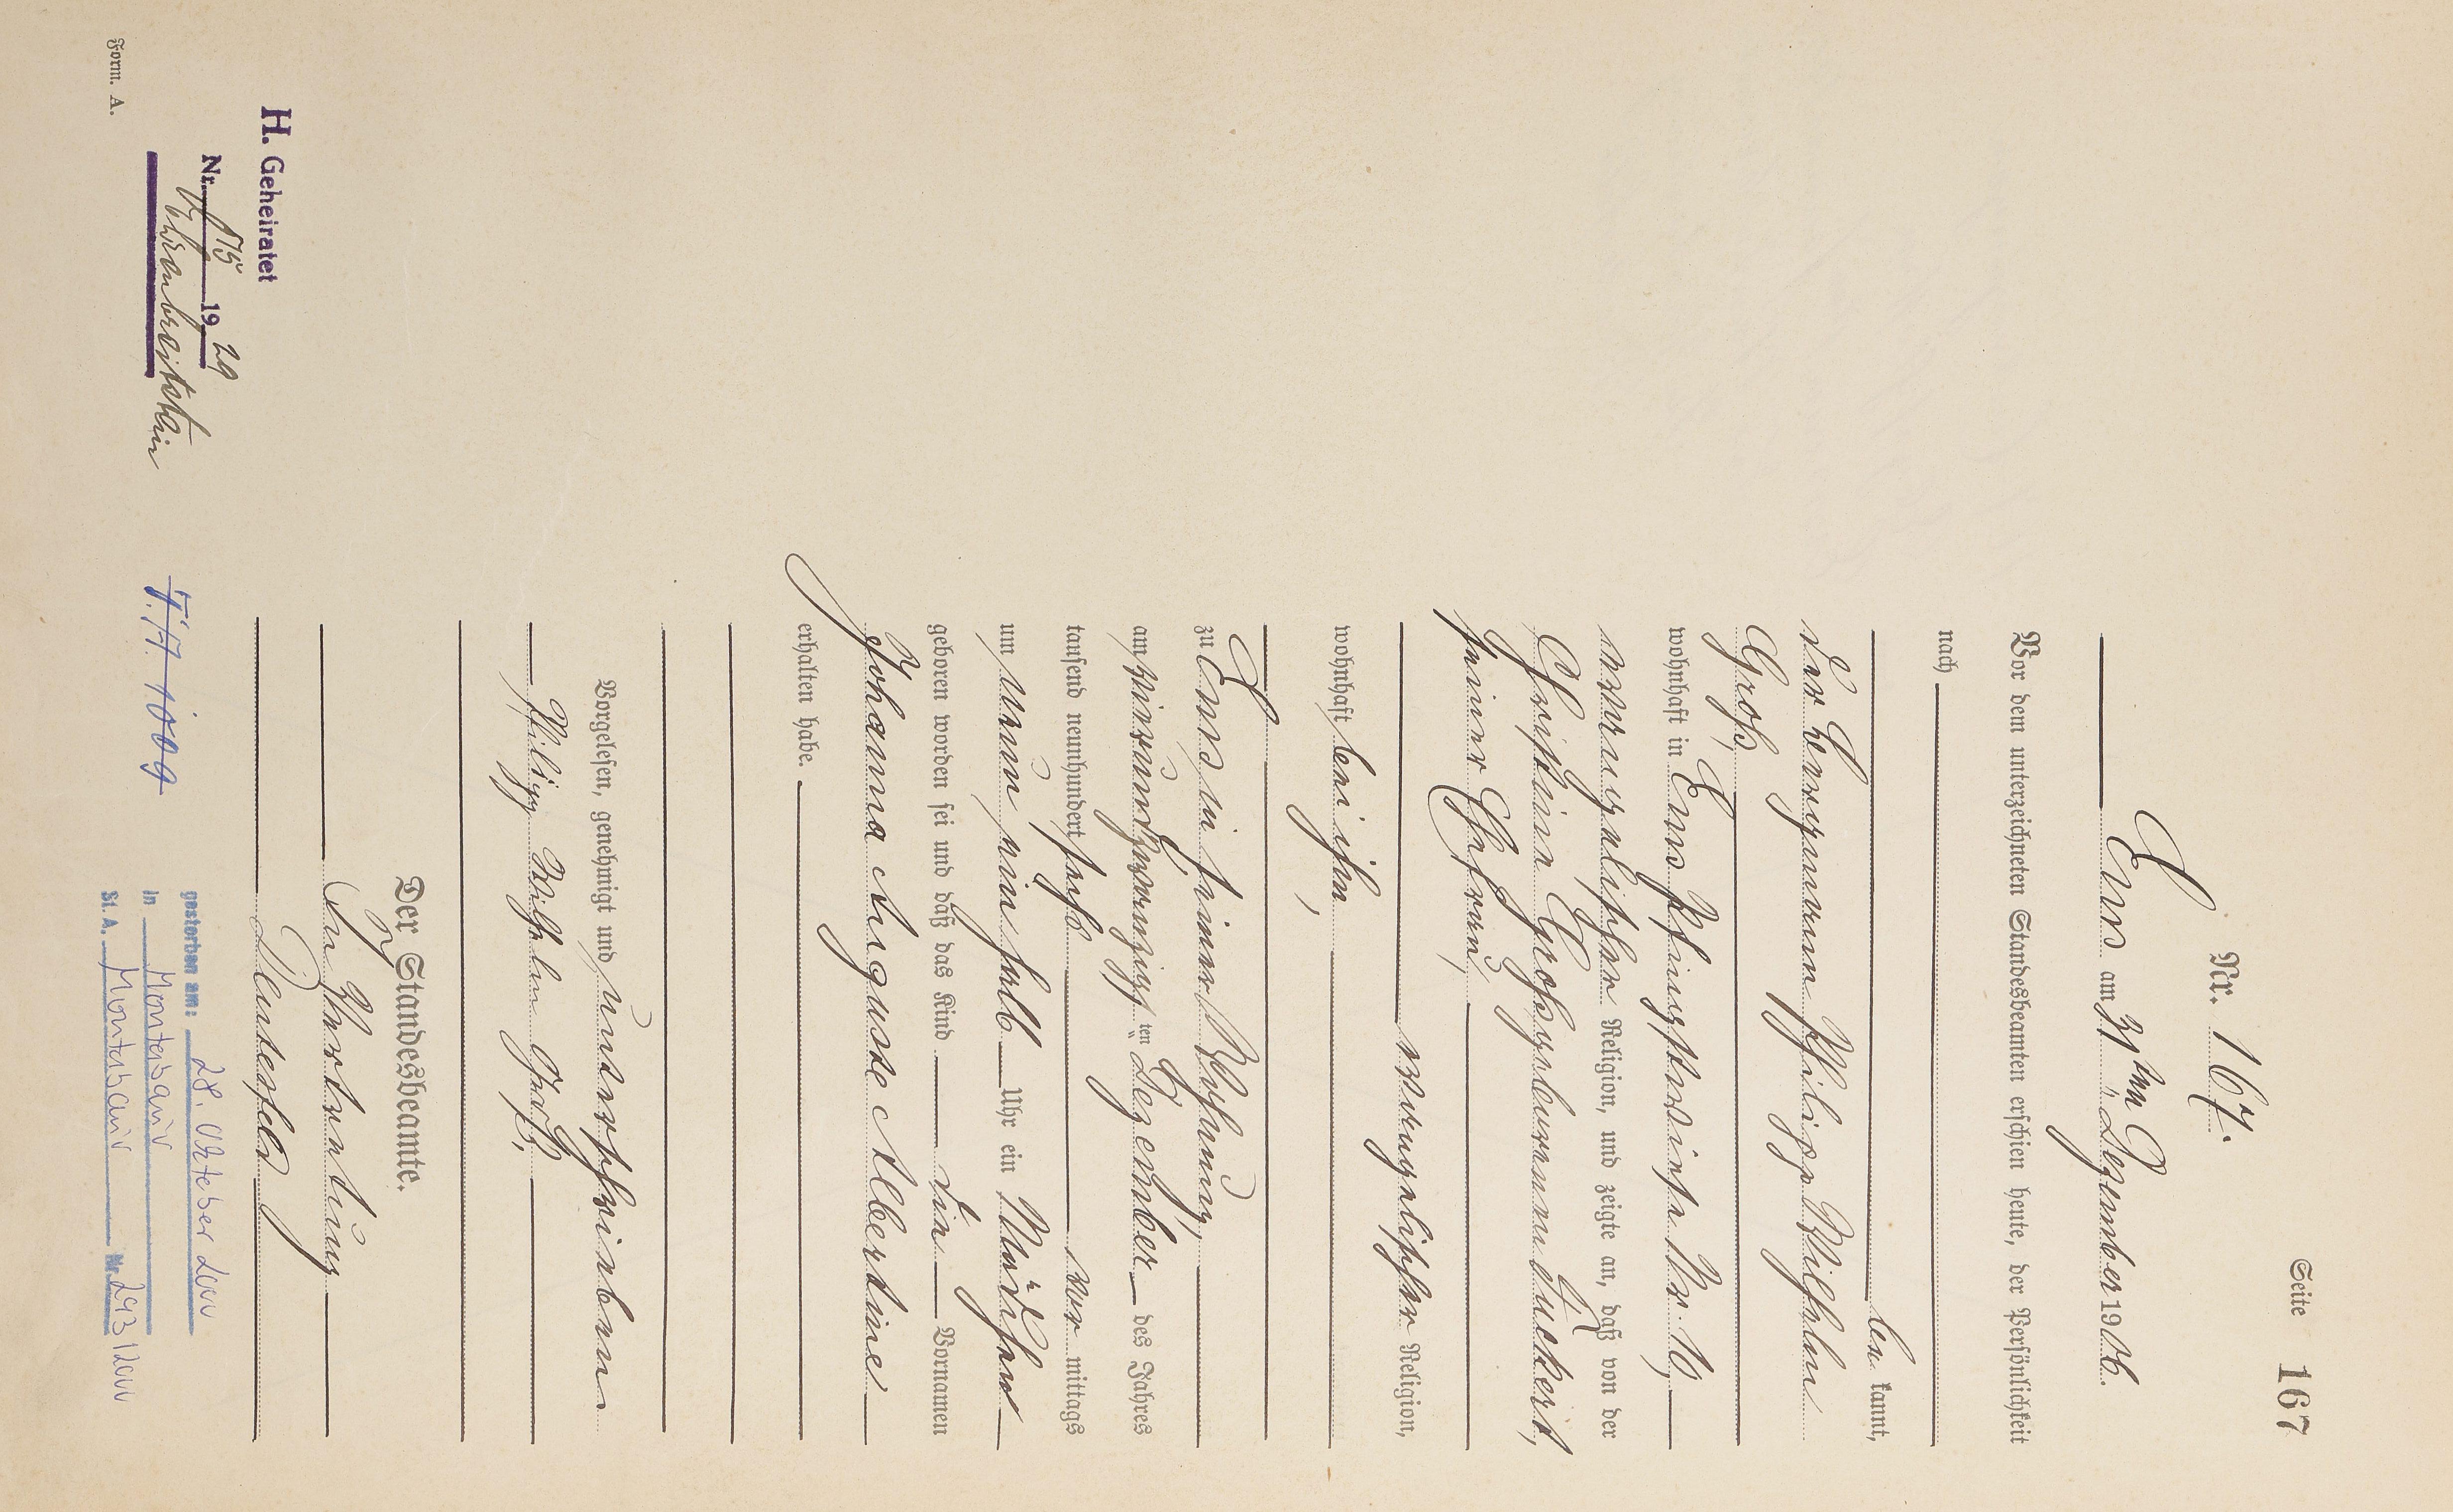 Seite 167
Nr. 167.
Ems am 31ten Dezember 1906.
Vor dem unterzeichneten Standesbeamten erschien heute, der Persönlichkeit
nach
be kannt,
der Bergmann Philipp Wilhelm
Groß,
wohnhaft in Ems Pfingstwiese Nr. 10,
evangelischer Religion, und zeigte an, daß von der
Christine Groß geborenen Zuckert,
seiner Ehefrau,
evangelischer Religion,
wohnhaft bei ihm,
zu Ems in seiner Wohnung,
am vierundzwanzigsten Dezember des Jahres
tausend neunhundert sechs vor mittags
um neun ein halb Uhr ein Mädchen
geboren worden sei und daß das Kind die Vornamen
Johanna Auguste Albertine
erhalten habe.
Vorgelesen, genehmigt und unterschrieben
Philipp Wilhelm Groß,
Der Standesbeamte.
In Vertretung
H. Geheiratet
Nr. 75 1929
Ehrenbreitstein
gestorben am: 28. Oktober 2000
in Montabaur
St. A. Montabaur Nr. 293/2000
Form. A.